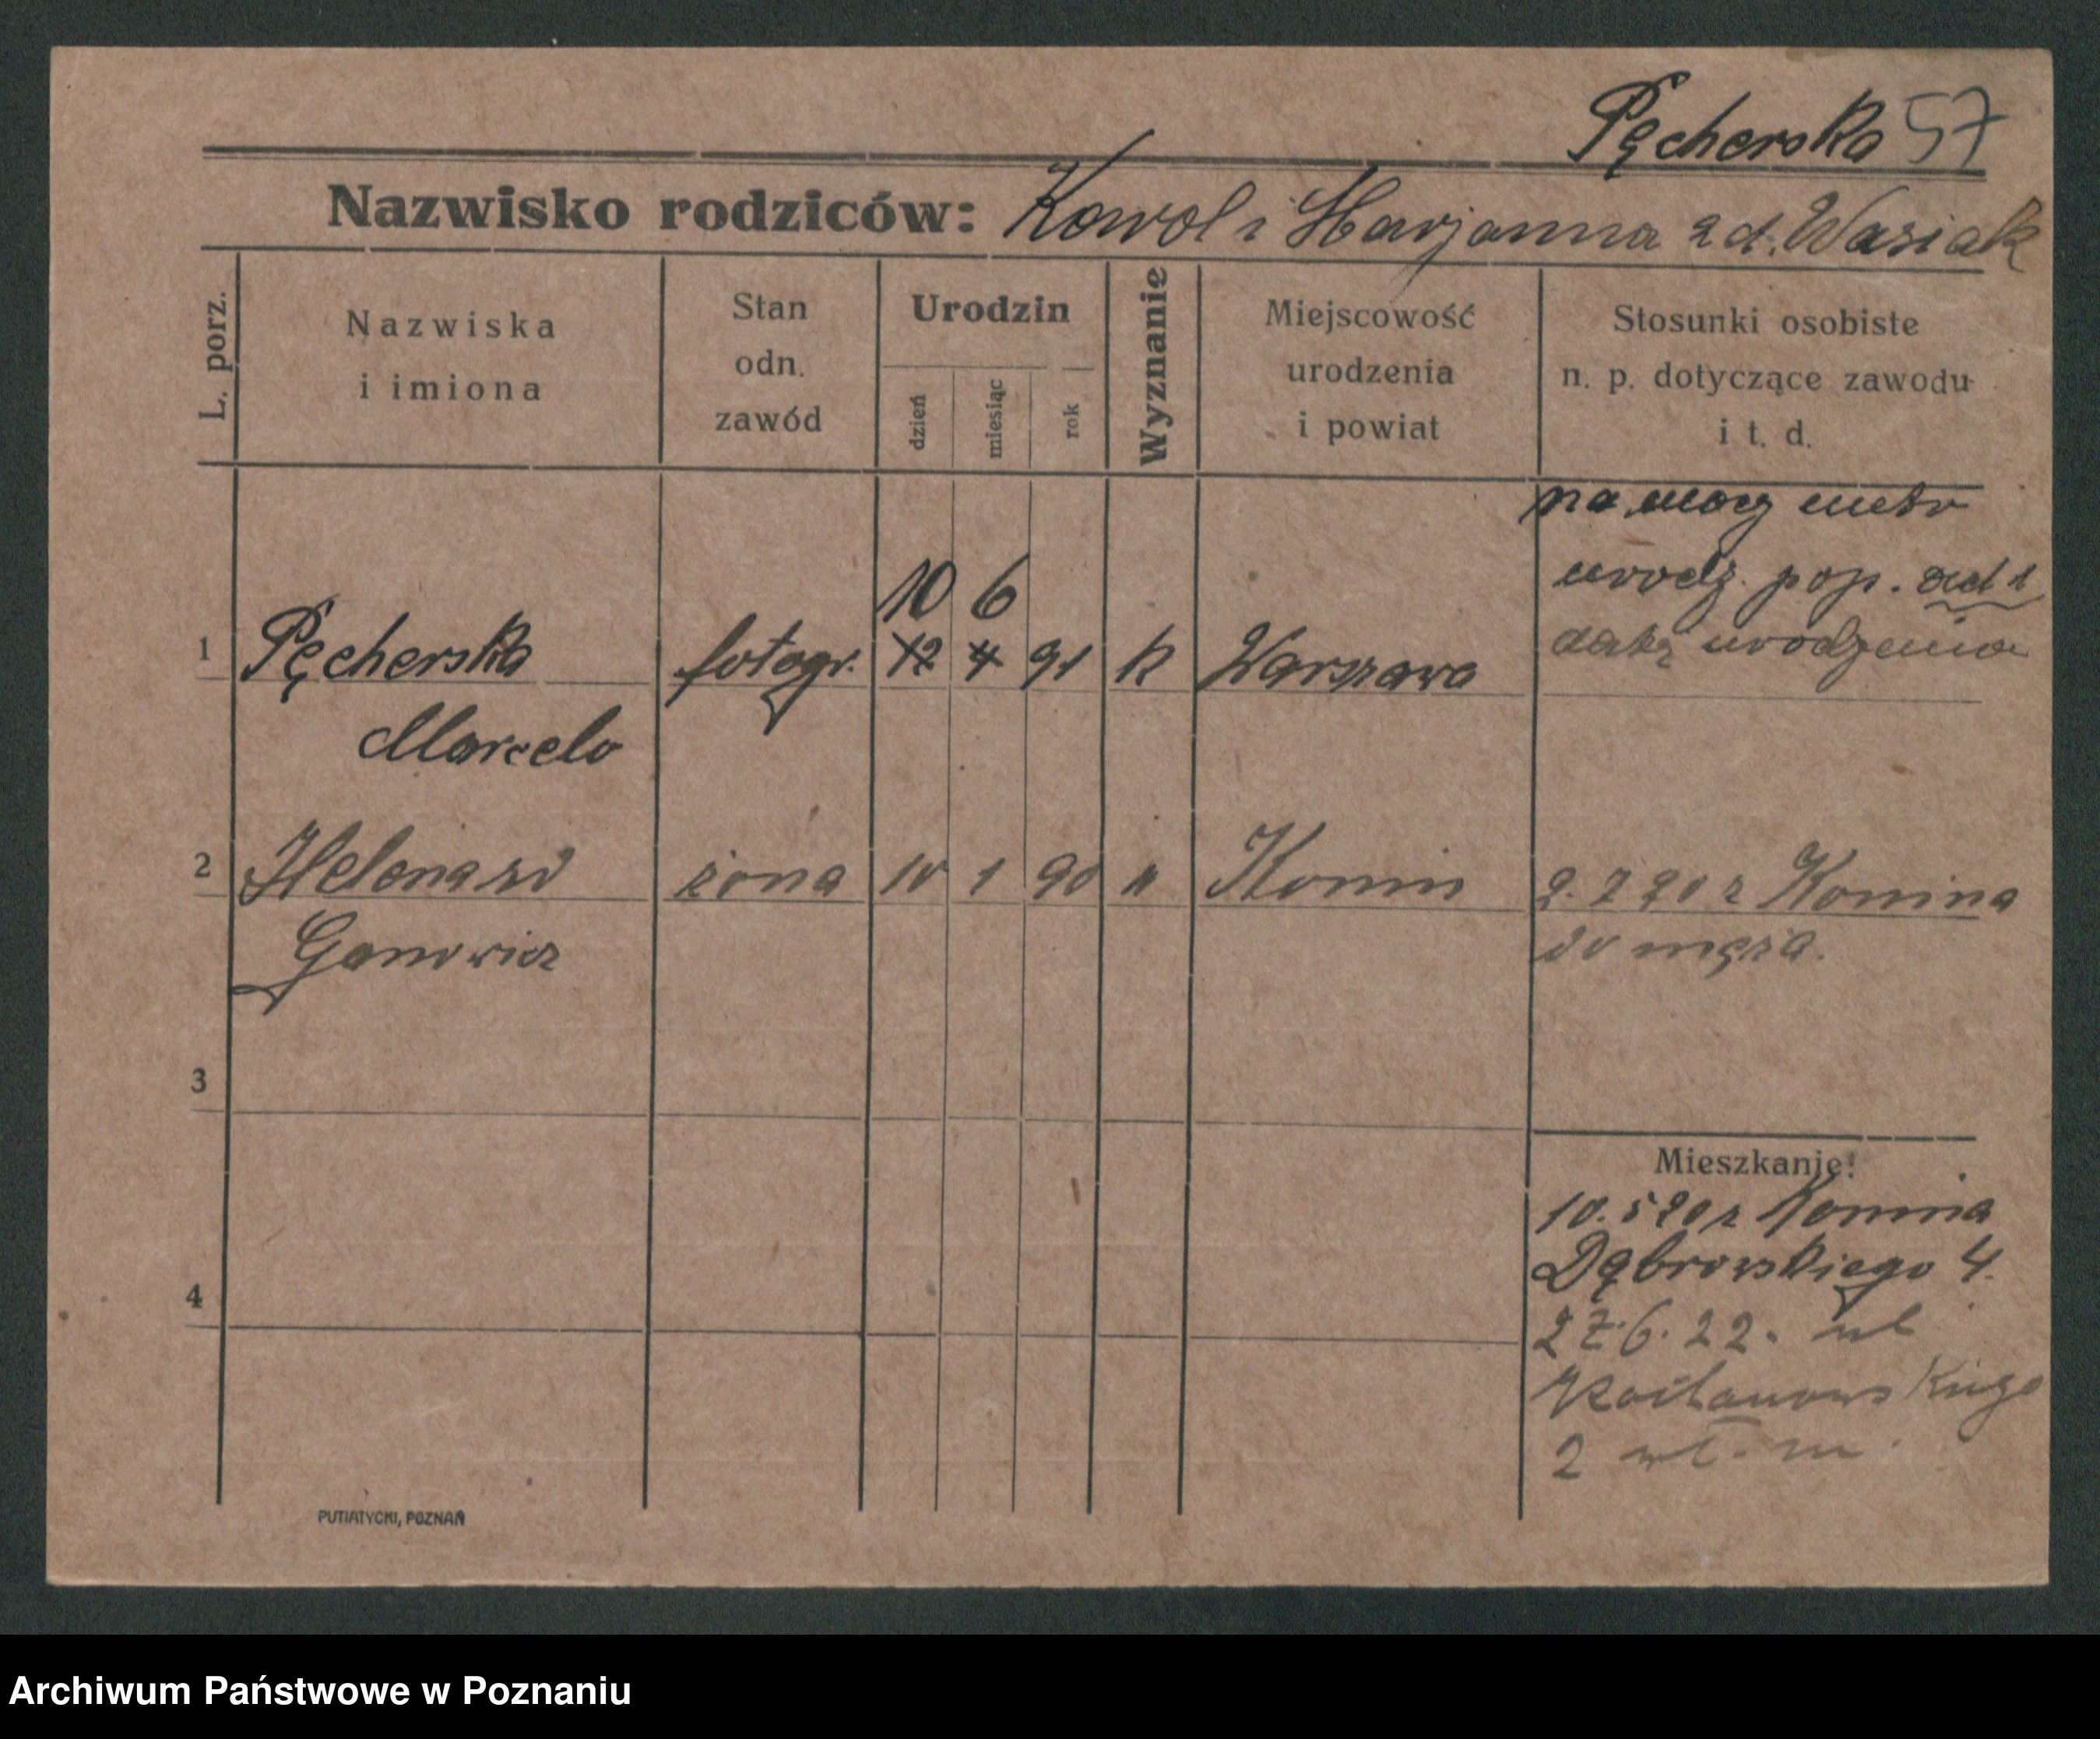 Pęcherska 57
Nazwisko rodziców: Karol i Marjanna z d. Wasiak
L. porz.
Nazwiska
i imiona
Stan
odn.
zawód
Urodzin
dzień
miesiąc
rok
Wyznanie
Miejscowość
urodzenia
i powiat
Stosunki osobiste
n. p. dotyczące zawodu
i t. d.
na mocy metr
urodz. pop.
datę urodzenia
10 6
1 Pęcherska fotogr. 12 4 91 k Warszawa
Marcela
2 Helena zd żona 10 1 90 " Konin 2.7 20 z Konina
Ganowicz do męża.
3
4
Mieszkanie:
10.5 20 z Konina
Dąbrowskiego 4.
27.6.22. ul
2
PUTIATYCKI, POZNAŃ
Archiwum Państwowe w Poznaniu